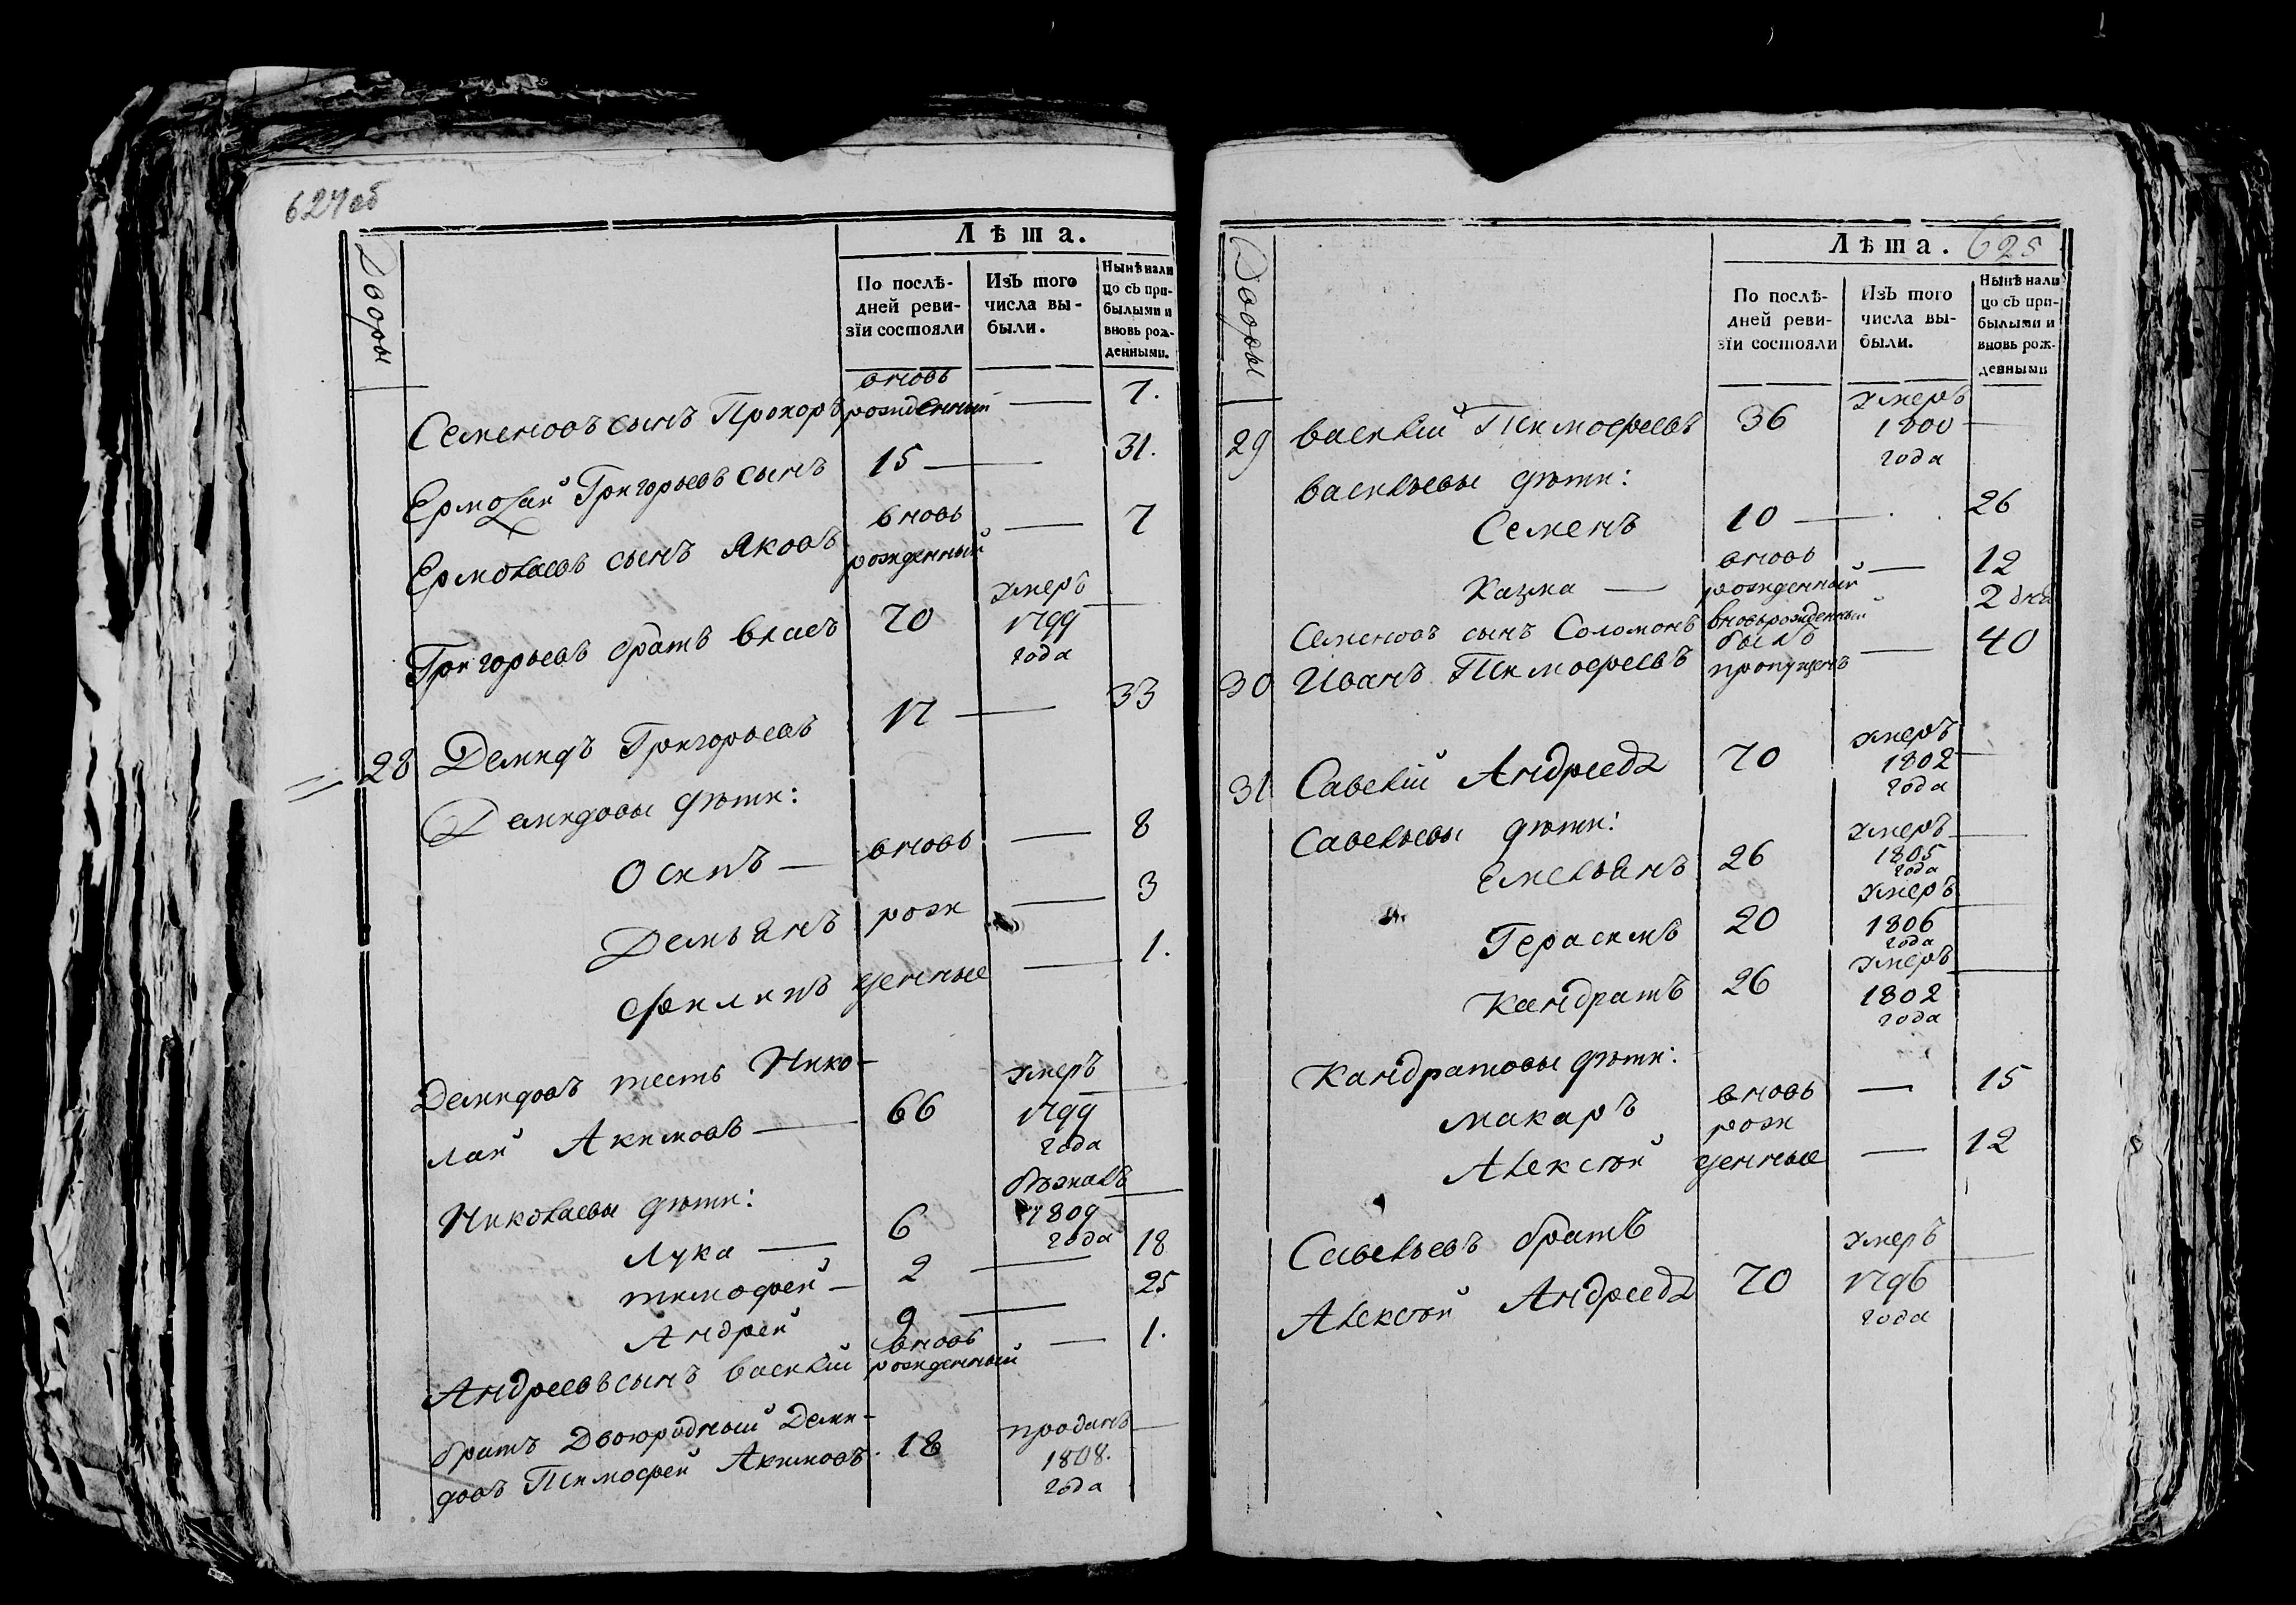 627об
Лѣта.
Дворы
По послѣ-
дней реви-
зїи состояли
Изъ того
числа вы-
были.
Нынѣ нали
цо съ при-
былыми и
вновь рож-
денными.
Семеновъ сынъ Прохоръ вновь рожденный — 7.
Ермолай Григорьевъ сынъ 15 — 31.
Ермолаевъ сынъ Яковъ вновь рожденный — 7
Григорьевъ братъ Власъ 70 умеръ 1799 года —
28 Демидъ Григорьевъ 17 — 33
Демидовы дѣти:
Осипъ — вновь — 8
Демьянъ рож — 3
Филипъ денные — 1.
Демидовъ тесть Нико-
лай Акимовъ — 66 умеръ 1799 года —
Николаевы дѣти:
Лука — 6 бѣжалъ 1809 года —
тимофей — 2 — 18
Андрей 9 — 25
Андреевъ сынъ василій вновь рожденный — 1.
братъ Двоюродный Деми-
довъ Тимофей Акимовъ. 18 проданъ 1808. года —
625
Лѣта.
Дворы
По послѣ-
дней реви-
зїи состояли
Изъ того
числа вы-
были.
Нынѣ нали
цо съ при-
былыми и
вновь рож-
денными
29 василій Тимофеевъ 36 умеръ 1800 года —
васильевы дѣти:
Семенъ 10 — 26
Казма — вновь рожденный — 12
Семеновъ сынъ Соломонъ вновьрожденный 2 дня
30 Иванъ Тимофеевъ былъ пропущенъ — 40
31 Савелій Андреевъ 70 умеръ 1802 года —
Савельевы дѣти:
Емельянъ 26 умеръ 1805 года —
Герасимъ 20 умеръ 1806 года —
Кандратъ 26 умеръ 1802 года —
Кандратовы дѣти:
макаръ вновь — 15
рож
Алексѣй денные — 12
Савельевъ братъ
Алексѣй Андреевъ 70 умеръ 1796 года —